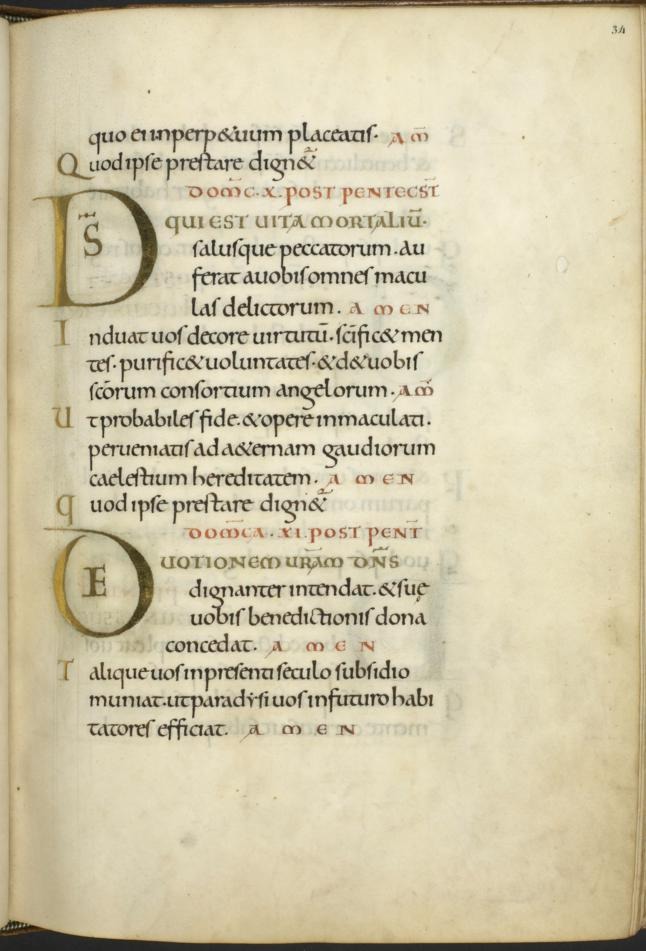 34
quo ei inperp&uum placeatis. AM̄
Quod ipse prestare dign&
DOMC̄. X. POST PENTECST̄
DS̄ QUI EST UITA MORTALIŪ.
salusque peccatorum. Au
ferat a uobis omnes macu
las delictorum. AMEN
Induat uos decore uirtutū. sc̄ific& men
tes. purific& uoluntates. & d& uobis
sc̄orum consortium angelorum. AM̄
Ut probabiles fide. & opere inmaculati.
perueniatis ad a&ernam gaudiorum
caelestium hereditatem. AMEN
Quod ipse prestare dign&
DOMC̄A. XI. POST PENT̄
DEUOTIONEM UR̄AM DN̄S
dignanter intendat. & suę
uobis benedictionis dona
concedat. AMEN
Talique uos inpresenti seculo subsidio
muniat. ut paradẏsi uos infuturo habi
tatores efficiat. AMEN